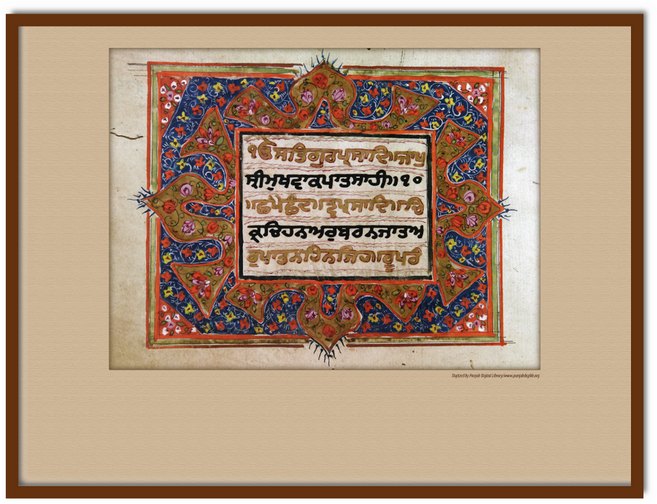 ੴ ਸਤਿਗੁਰਪ੍ਰਸਾਦਿ॥ਜਾਪੁ
ਸ੍ਰੀਮੁਖਵਾਕਪਾਤਸਾਹੀ॥੧੦
॥ਛਪੈਛੰਦ॥ਤ੍ਵਪ੍ਰਸਾਦਿ॥ਚ
ਕ੍ਰਚਿਹਨਅਰੁਬਰਨਜਾਤਅ
ਰੁਪਾਤਨਹਿਨਜਿਹ॥ਰੂਪਰੰ
Digitized By Panjab Digital Library | www.panjabdigilib.org